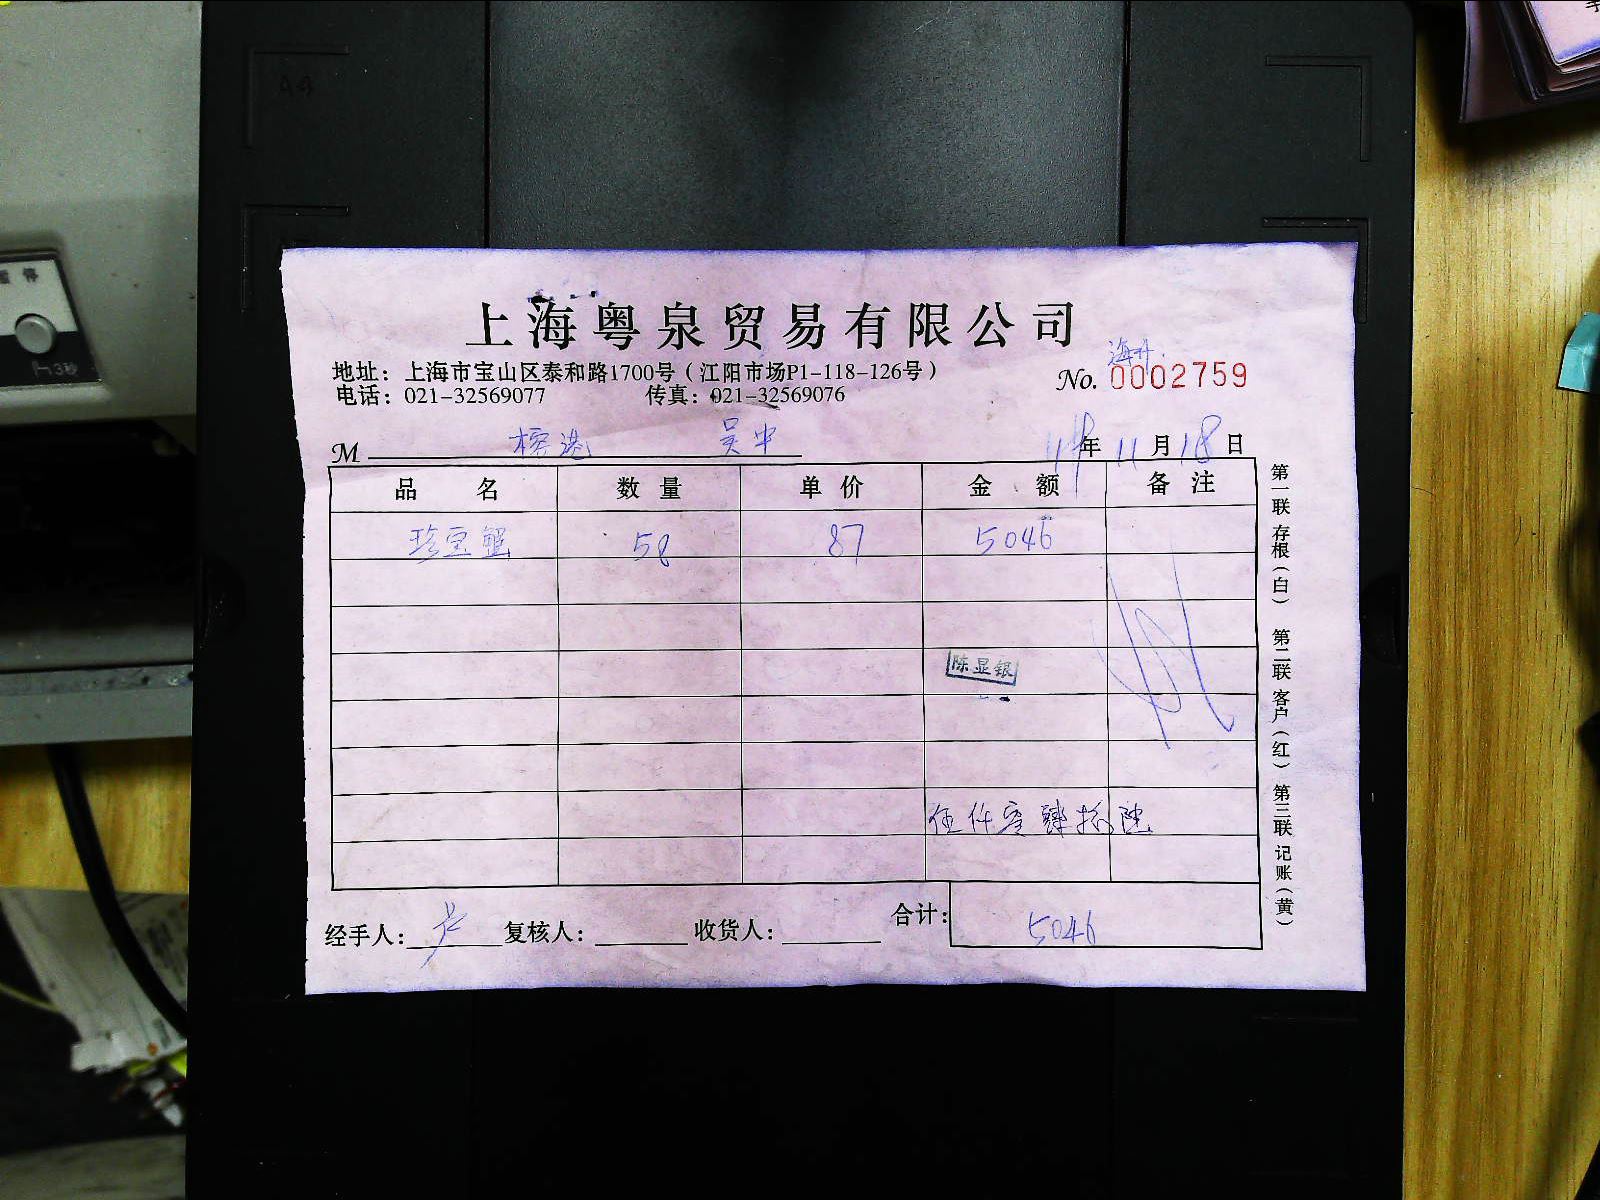 上海粤泉贸易有限公司
地址：上海市宝山区泰和路1700号（江阳市场P1-118-126号）
电话：021-32569077 传真：021-32569076
No. 0002759
M 吴中 年 11 月 18 日
品名 数量 单价 金额 备注
珍宝蟹 58 87 5046
陈显银
伍仟零肆拾陆
合计： 5046
经手人： 复核人： 收货人：
第一联 存根（白） 第二联 客户（红） 第三联 记账（黄）
A4
3秒